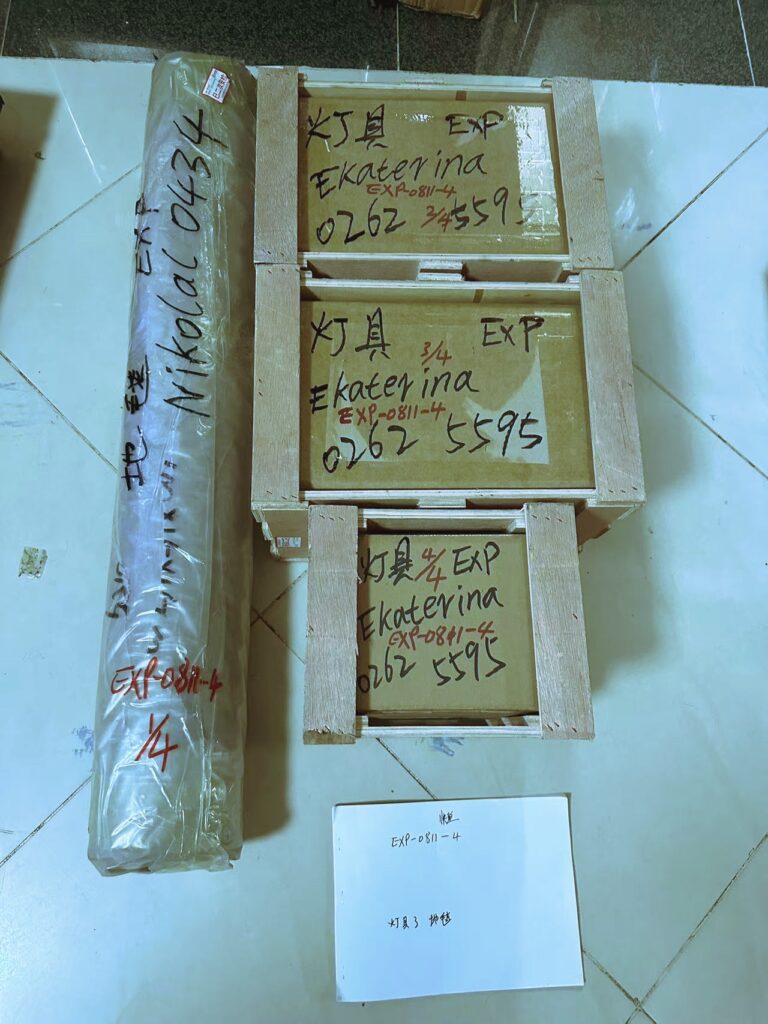 Nikolai 0434
EXP
地毯
EXP-0811-4
1/4
灯具 EXP
Ekaterina
EXP-0811-4
0262 3/4 5595
灯具 3/4 EXP
Ekaterina
EXP-0811-4
0262 5595
灯具 4/4 EXP
Ekaterina
EXP-0811-4
0262 5595
EXP-0811-4
灯具3 地毯